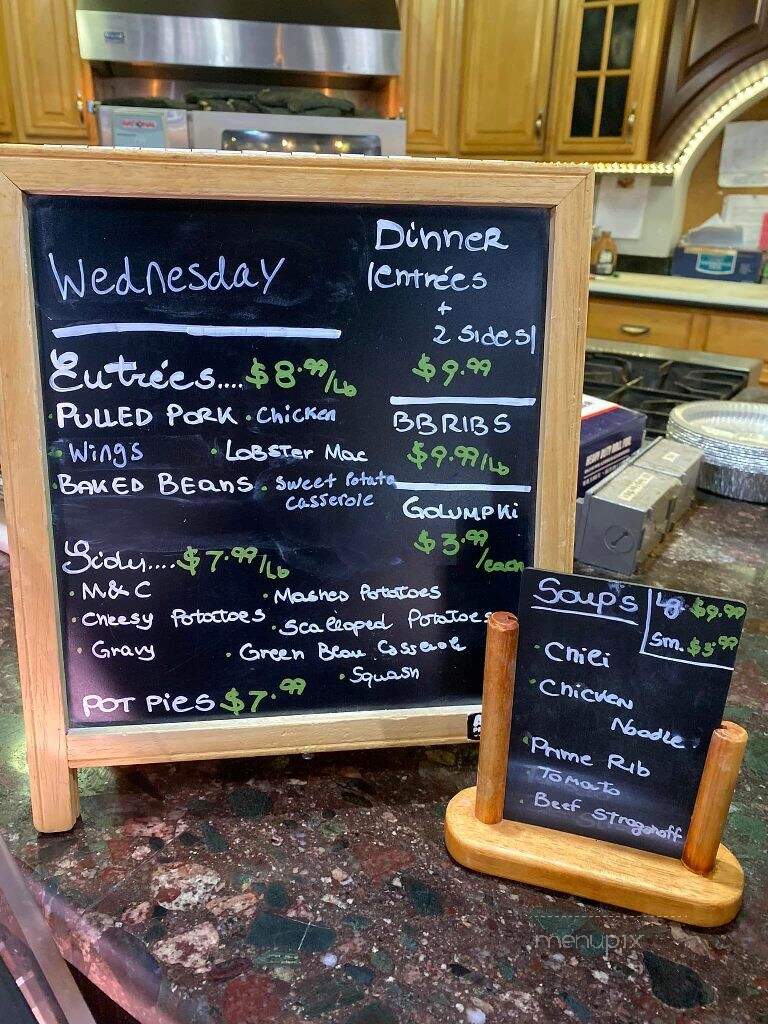 Wednesday
Entrées.... $8.99/Lb
• PULLED PORK • Chicken
• Wings • LOBSTER Mac
• BAKED BEANS • Sweet Potato
casserole
Sides.... $7.99/Lb
• M&C • Mashed Potatoes
• Cheesy Potatoes • Scalloped Potatoes
• Gravy • Green Bean Casserole
• Squash
POT PIES $7.99
DINNER
1entrées
+
2 Sides|
$9.99
BBRIBS
$9.99/Lb
GOLUMPKI
$3.99/each
Soups
Lg. $9.99
Sm. $5.99
• Chili
• Chicken
Noodle
• Prime Rib
• Tomato
• Beef Stroganoff
HEAVY DUTY
menupix